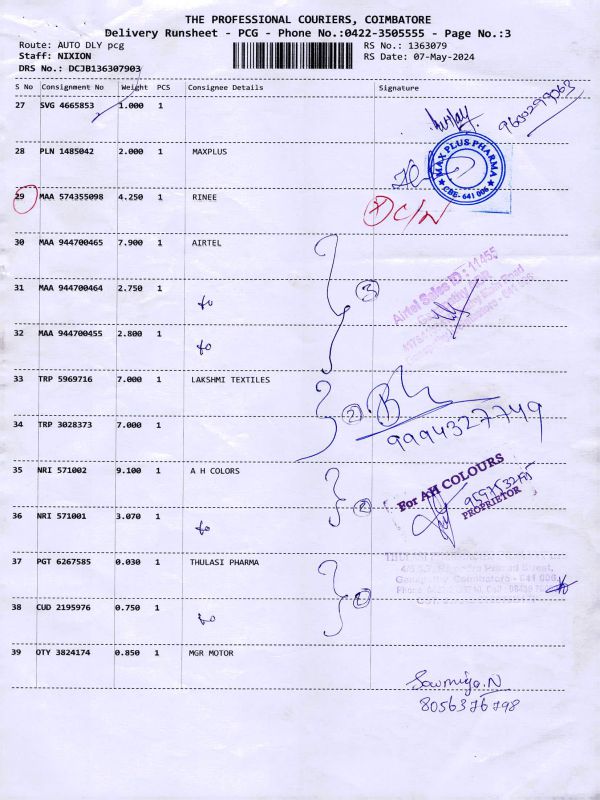 THE PROFESSIONAL COURIERS, COIMBATORE
Delivery Runsheet - PCG - Phone No.:0422-3505555 - Page No.:3
Route: AUTO DLY pcg RS No.: 1363079
Staff: NIXION RS Date: 07-May-2024
DRS No.: DCJB136307903
S No Consignment No Weight PCS Consignee Details Signature
27 SVG 4665853 1.000 1
28 PLN 1485042 2.000 1 MAXPLUS
MAX PLUS PHARMA
CBE- 641 006
29 MAA 574355098 4.250 1 RINEE
C/N
30 MAA 944700465 7.900 1 AIRTEL
Airtel Sales ID : 11455
31 MAA 944700464 2.750 1
3
32 MAA 944700455 2.800 1
33 TRP 5969716 7.000 1 LAKSHMI TEXTILES
2
9994327749
34 TRP 3028373 7.000 1
35 NRI 571002 9.100 1 A H COLORS
2
For AH COLOURS
PROPRIETOR
36 NRI 571001 3.070 1
37 PGT 6267585 0.030 1 THULASI PHARMA
Street,
Coimbatore - 641 006
2
38 CUD 2195976 0.750 1
39 OTY 3824174 0.850 1 MGR MOTOR
Sowmiya.N
8056376798